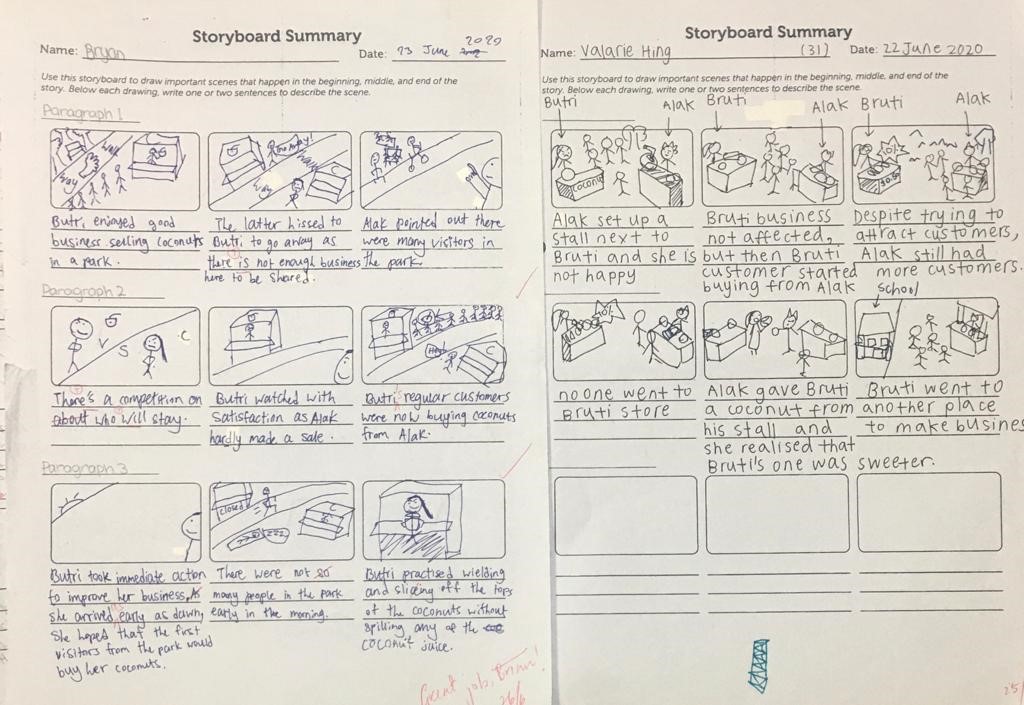 Storyboard Summary
Name: Bryan Date: 23 June 2020
Use this storyboard to draw important scenes that happen in the beginning, middle, and end of the
story. Below each drawing, write one or two sentences to describe the scene.
Paragraph 1
Butri enjoyed good
business selling coconuts
in a park.
The latter hissed to
Butri to go away as
there is not enough business
here to be shared.
Alak pointed out there
were many visitors in
the park.
Paragraph 2
V S C
There's a competition on
about who will stay.
Butri watched with
Satisfaction as Alak
hardly made a sale.
Hey! C
Butri regular customers
were now buying coconuts
from Alak.
Paragraph 3
Butri took immediate action
to improve her business, As
she arrived early as dawn,
She hoped that the first
visitors from the park would
buy her coconuts.
closed C
There were not so
many people in the park
early in the morning.
Butri practised wielding
and slicing off the tops
of the coconuts without
spilling any of the
coconut juice.
Great job,
26/6
Storyboard Summary
Name: Valarie Hing (31) Date: 22 June 2020
Use this storyboard to draw important scenes that happen in the beginning, middle, and end of the
story. Below each drawing, write one or two sentences to describe the scene.
Butri Alak Bruti Alak Bruti Alak
coconut
Alak set up a
stall next to
Bruti and she is
not happy
Bruti business
not affected,
but then Bruti
customer started
buying from Alak
Despite trying to
attract customers,
Alak still had
more customers.
school
no one went to
Bruti store
Alak gave Bruti
a coconut from
his stall and
she realised that
Bruti's one was sweeter.
Bruti went to
another place
to make busines